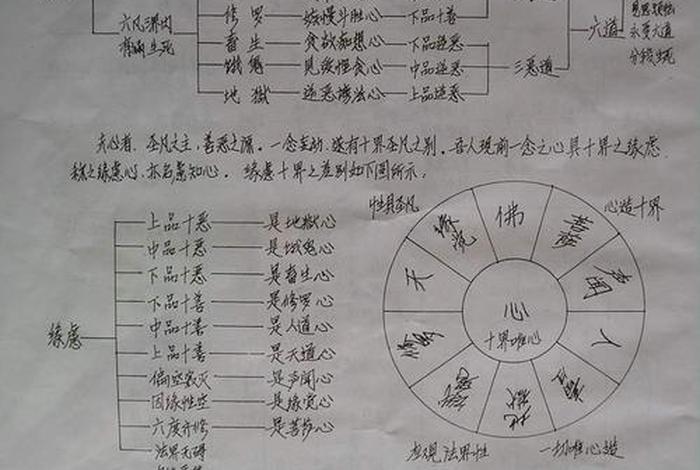 修罗——嫉慢斗胜心——下品十善
六凡界内
有漏生死
畜生——贪欲痴想心——下品逆恶
饿鬼——见绫悭贪心——中品逆恶
地獄——逆恶谤法心——上品逆恶
三恶道
六道
见思烦恼
永受六道
分段生死
夫心者、圣凡之主，善恶之源。一念妄动、遂有十界圣凡之别。吾人现前一念之心具十界之缘虑
称之缘虑心、亦名虑知心。缘虑十界之差别如下图所示：
缘虑
上品十恶——是地獄心
中品十恶——是饿鬼心
下品十恶——是畜生心
下品十善——是修罗心
中品十善——是人道心
上品十善——是天道心
偏空寂灭——是声闻心
因缘性空——是缘觉心
六度齐修——是菩萨心
法界无碍
性具圣凡
心造十界
佛
菩萨
声闻
人
畜生
地獄
饿鬼
修罗
天
缘觉
心
十界唯心
应观法界性
一切唯心造